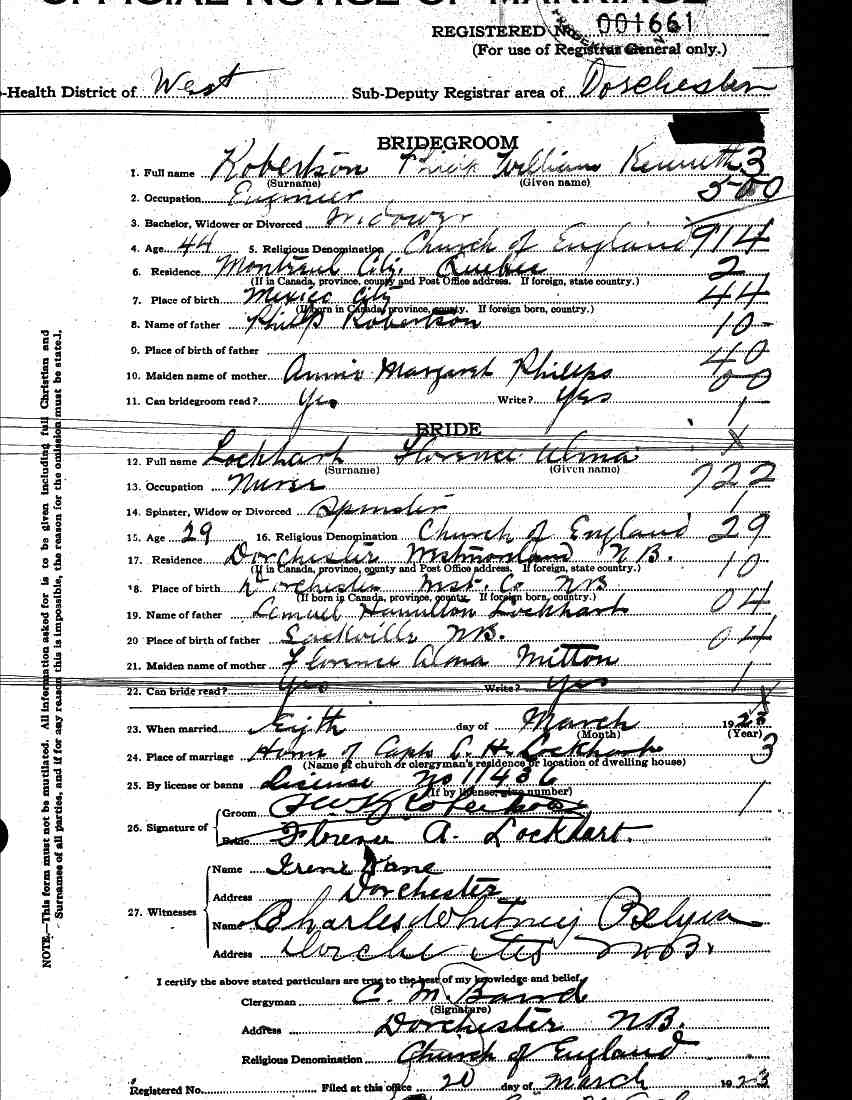 OFFICIAL NOTICE OF MARRIAGE
REGISTERED No. 001661
(For use of Registrar General only.)
-Health District of West Sub-Deputy Registrar area of Dorchester
BRIDEGROOM
1. Full name Robertson William Kenneth 3
(Surname) (Given name)
2. Occupation Engineer 500
3. Bachelor, Widower or Divorced Widower
4. Age 44 5. Religious Denomination Church of England 914
6. Residence Montreal City, Quebec 2
(If in Canada, province, county and Post Office address. If foreign, state country.)
7. Place of birth Mexico City 44
(If born in Canada, province, county. If foreign born, country.)
8. Name of father Philip Robertson 10
9. Place of birth of father 40
10. Maiden name of mother Annie Margaret Philips 00
11. Can bridegroom read? Yes Write? Yes 1
BRIDE
12. Full name Lockhart Florence Alma X
(Surname) (Given name)
13. Occupation Nurse 722
14. Spinster, Widow or Divorced Spinster 1
15. Age 29 16. Religious Denomination Church of England 29
17. Residence Dorchester Westmorland N B. 10
(If in Canada, province, county and Post Office address. If foreign, state country.)
18. Place of birth Dorchester West. Co NB 04
(If born in Canada, province, county. If foreign born, country.)
19. Name of father Lemuel Hamilton Lockhart
20 Place of birth of father Sackville NB. 04
21. Maiden name of mother Florence Alma Mitton
22. Can bride read? Yes Write? Yes 1
23. When married day of March 1923 X
(Month) (Year)
24. Place of marriage Home of Capt C. H. Lockhart 3
(Name of church or clergyman's residence or location of dwelling house)
25. By license or banns License No 11436
(If by license, give number)
26. Signature of Groom Robertson 1
Bride Florence A. Lockhart.
27. Witnesses Name Irene Dane
Address Dorchester
Name Charles Whitney Belyea
Address Dorchester N.B.
I certify the above stated particulars are true to the best of my knowledge and belief.
Clergyman C. M. Baird
(Signature)
Address Dorchester NB.
Religious Denomination Church of England
Registered No. Filed at this office 20 day of March 1923
NOTE.—This form must not be mutilated. All information asked for is to be given including full Christian and
Surnames of all parties, and if for any reason this is impossible, the reason for the omission must be stated.